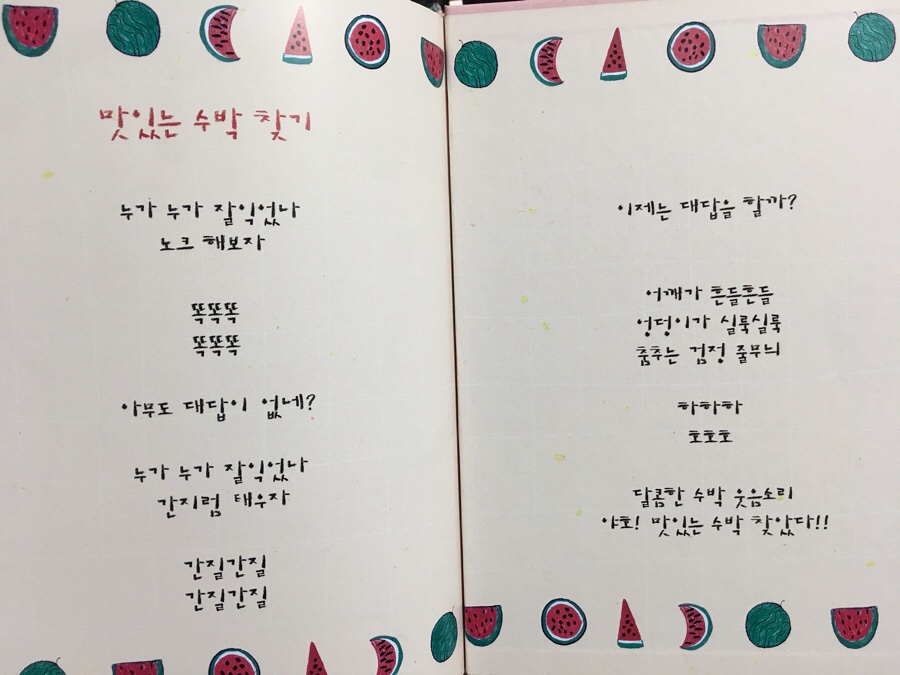 맛있는 수박 찾기
누가 누가 잘익었나
노크 해보자
똑똑똑
똑똑똑
아무도 대답이 없네?
누가 누가 잘익었나
간지럼 태우자
간질간질
간질간질
이제는 대답을 할까?
어깨가 흔들흔들
엉덩이가 실룩실룩
춤추는 검정 줄무늬
하하하
호호호
달콤한 수박 웃음소리
야호! 맛있는 수박 찾았다!!